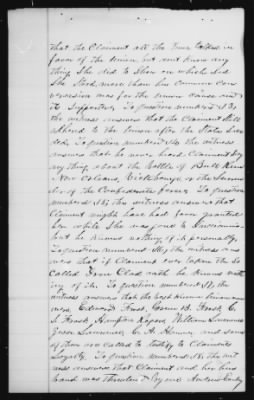 that the Claimant all the time talked in
favor of the Union but not know any
thing She did to Show on which side
She Stood more than her common con
versation was for the Union cause and
its Supporters. To question number 43
the witness answers that the Claimant Still
adhered to the Union after the State Sece
ded. To question number 44 the witness
answers that he never heard Claimant Say
any thing about the battle of Bull Run
New Orleans, Vicksburg or the Surren
der of the Confederate forces. To question
number 45 the witness answers that
Claimant might have had favor granted
her while She was gone to
but he knows nothing of it personally.
To question number 46 the witness ans
wers that if Claimant ever taken the So
Called Iron Clad oath he knows noth
ing of it. To question number 47 the
witness answers that the best known Unionmen
were Edward Frost, B. Frost C.
L. Frost Hampton William
Jason C. A. and some
of them are called to testify to Claimants
Loyalty. To question number 48 the wit
ness answers that Claimant and her hus
band was threatened by one